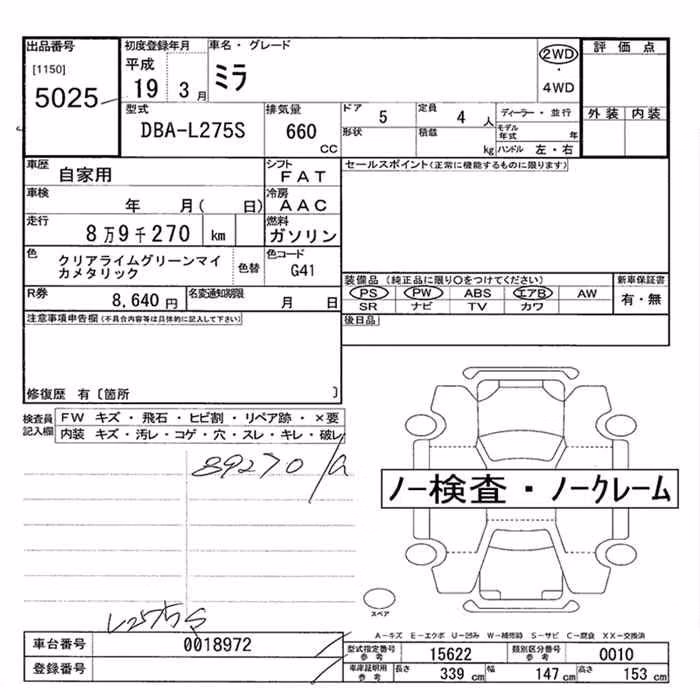 出品番号
[1150]
5025
初度登録年月
平成
19 3 月
車名・グレード
ミラ
2WD
・
4WD
評価点
外装 内装
型式
DBA-L275S
排気量
660
CC
ドア 5
定員 4 人
形状
積載 kg
ディーラー・並行
モデル年式 年
ハンドル 左・右
車歴
自家用
シフト
FAT
セールスポイント(正常に機能するものに限ります)
車検
年 月( 日)
冷房
AAC
走行
8万9千270 km
燃料
ガソリン
色
クリアライムグリーンマイ
カメタリック
色替
色コード
G41
装備品 (純正品に限り○をつけてください)
PS PW ABS エアB AW
SR ナビ TV カワ
新車保証書
有・無
R券
8,640 円
名変通知期限
月 日
後日品
注意事項申告欄(不具合内容等は具体的に記入して下さい)
修復歴 有〔箇所 〕
検査員
記入欄
FW キズ・飛石・ヒビ割・リペア跡・×要
内装 キズ・汚レ・コゲ・穴・スレ・キレ・破レ
89270
ノー検査・ノークレーム
スペア
L275S
A-キズ E-エクボ U-凹み W-補修跡 S-サビ C-腐食 XX-交換済
車台番号
0018972
登録番号
型式指定番号
参考
15622
類別区分番号
参考
0010
車庫証明用
参考
長さ 339 cm
幅 147 cm
高さ 153 cm